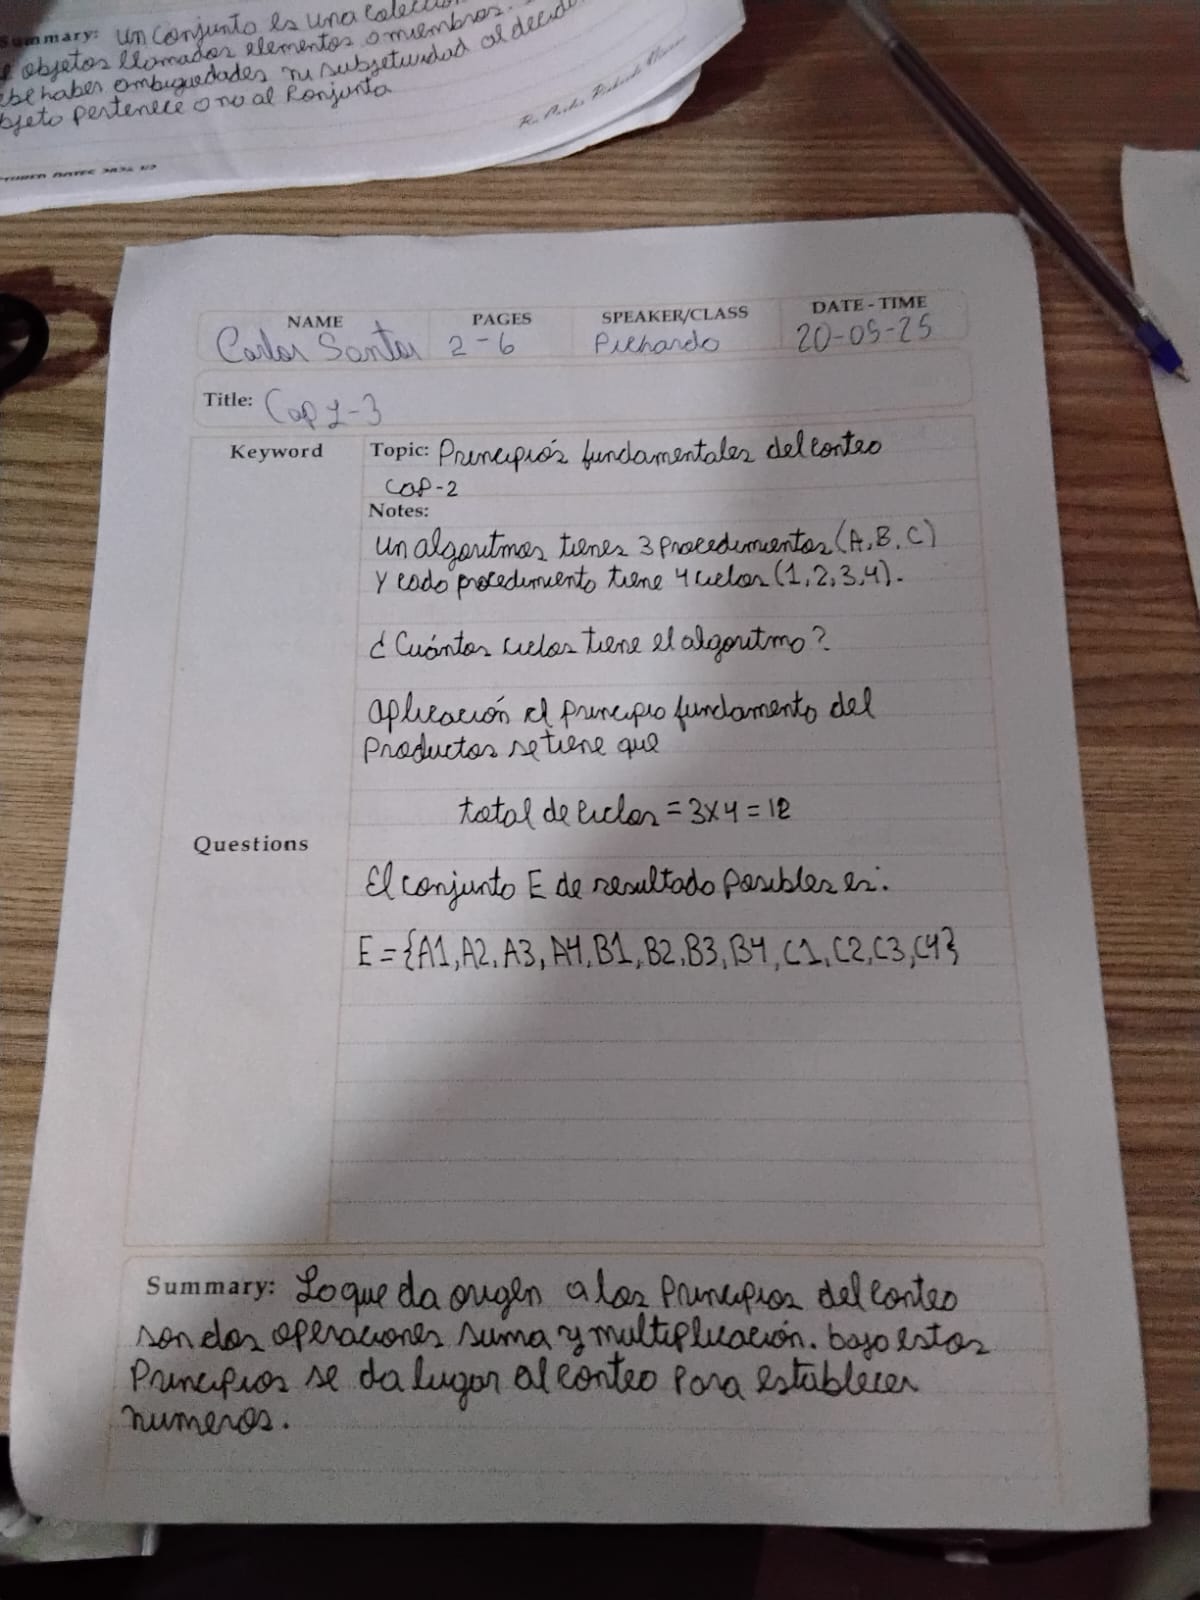 Summary: Un conjunto es una colección
objetos llamados elementos o miembros.
haber ambiguedades ni subjetividad al decidir
objeto pertenece o no al conjunto
NAME PAGES SPEAKER/CLASS DATE - TIME
Carlos Santos 2-6 Pichardo 20-05-25
Title: Cap 1-3
Keyword Topic: Principios fundamentales del conteo
Cap-2
Notes:
Un algoritmos tienes 3 procedimientos (A, B, C)
y cada procedimiento tiene 4 ciclos (1, 2, 3, 4).
¿Cuántos ciclos tiene el algoritmo?
Aplicación el principio fundamento del
productos se tiene que
total de ciclos = 3x4 = 12
Questions
El conjunto E de resultado posibles es:
E = {A1, A2, A3, A4, B1, B2, B3, B4, C1, C2, C3, C4}
Summary: Lo que da origen a los principios del conteo
son dos operaciones suma y multiplicación. bajo estos
Principios se da lugar al conteo para establecer
numeros.